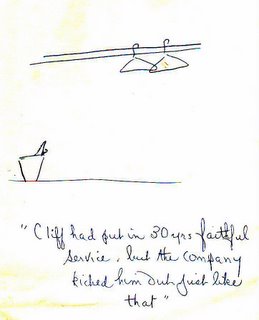 "Cliff had put in 30 yrs faithful
service, but the company
kicked him out just like
that"